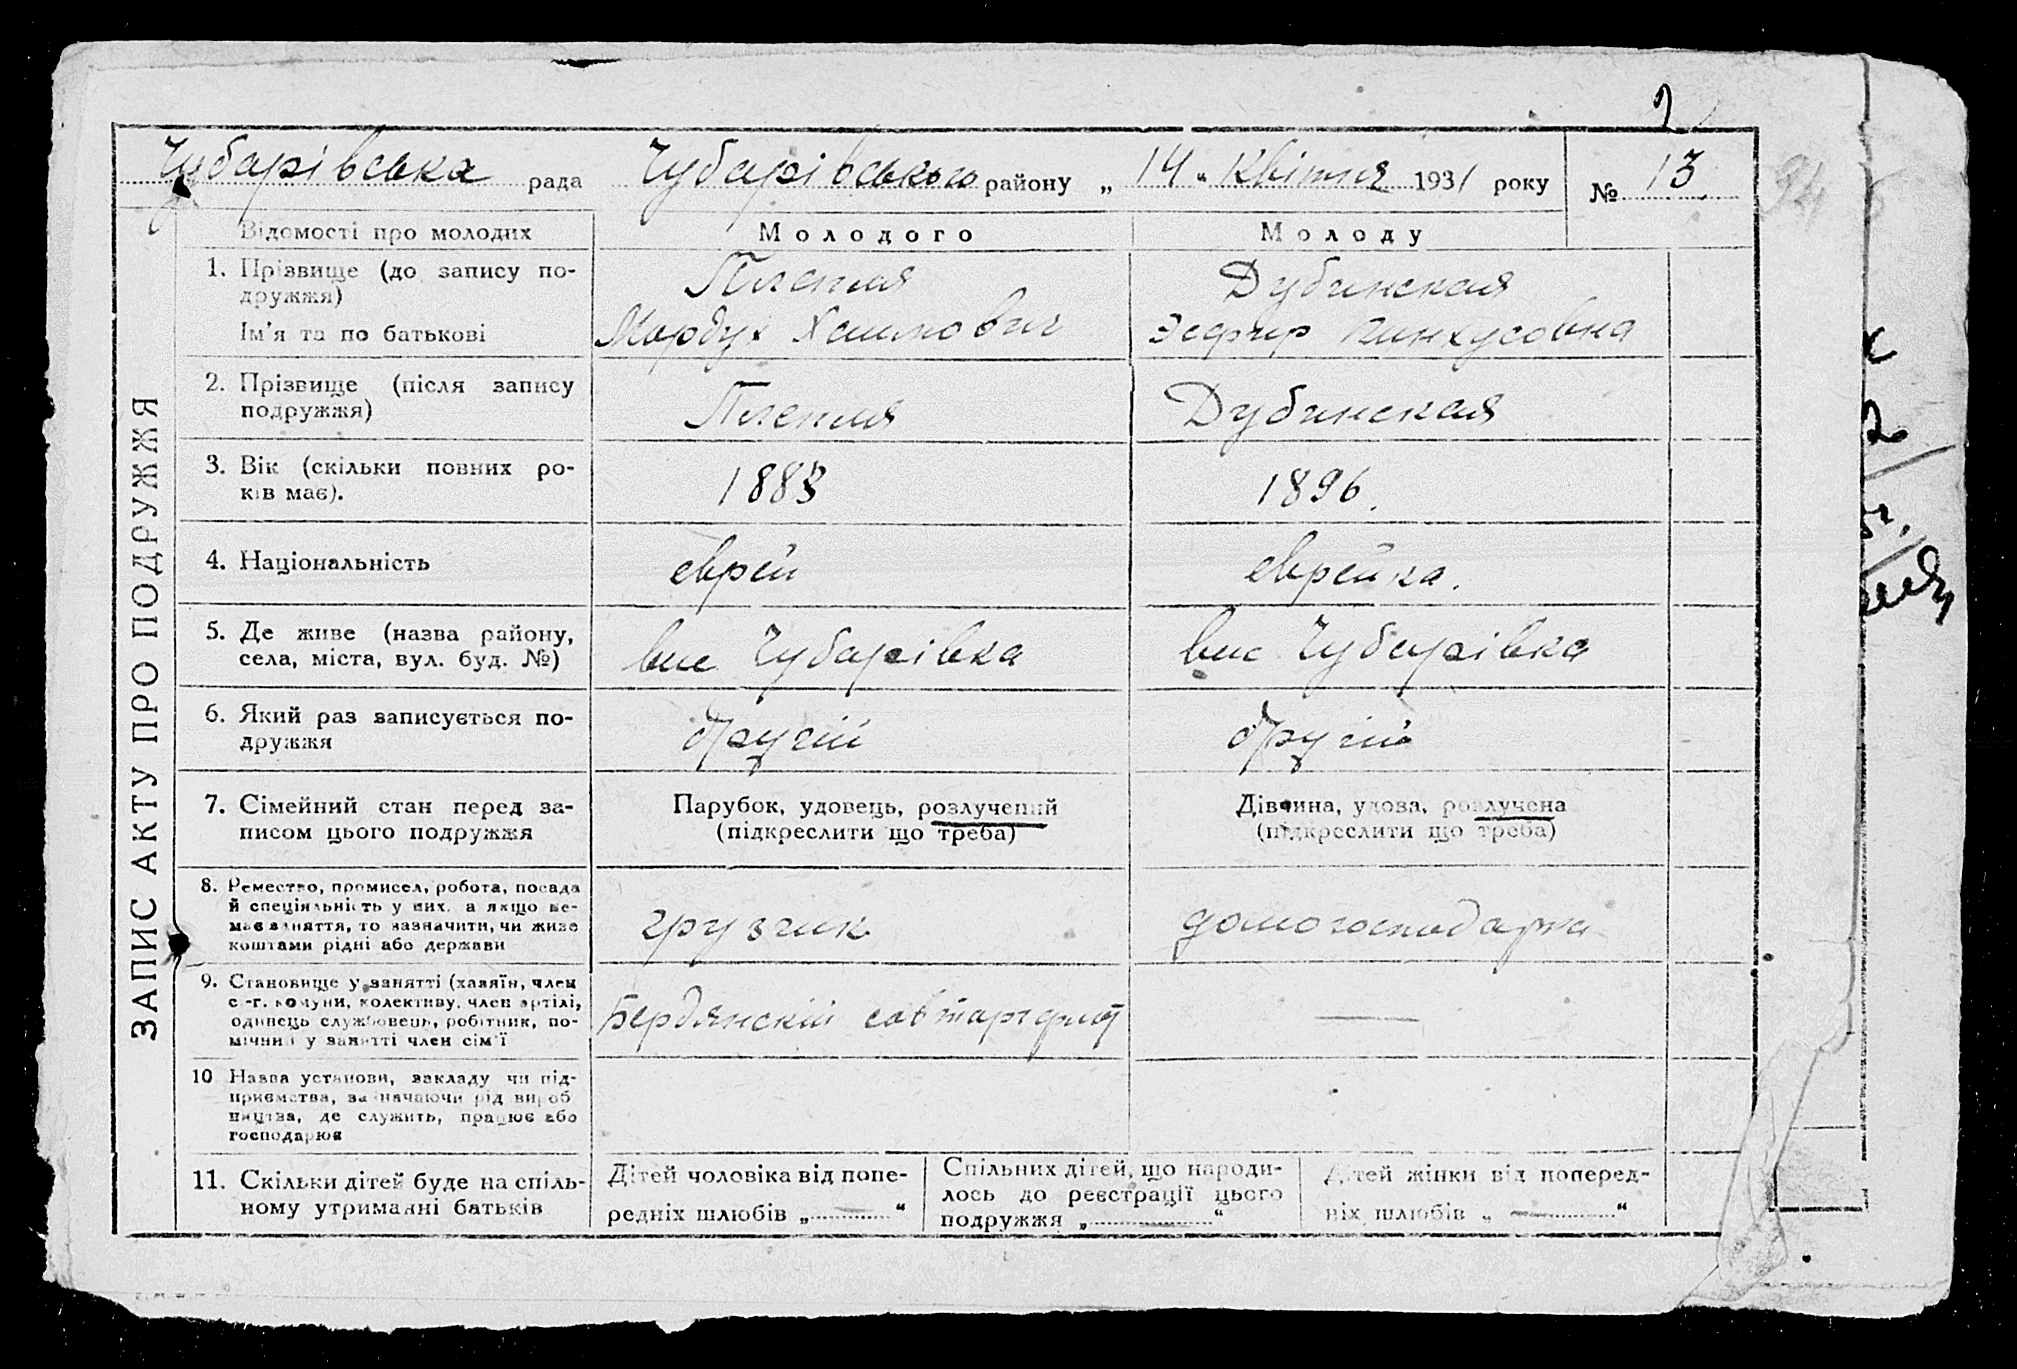 2
Чубарівська рада Чубарівського району „ 14 " квітня 1931 року № 13
94
Відомості про молодих
Молодого
Молоду
ЗАПИС АКТУ ПРО ПОДРУЖЖЯ
1. Прізвище (до запису по-
дружжя)
Дубинская
Ім'я та по батькові
Мордух Хаимович
Эсфир Пинхусовна
2. Прізвище (після запису
подружжя)
Дубинская
3. Вік (скільки повних ро-
ків має).
1883
1896.
4. Національність
еврей
еврейка.
5. Де живе (назва району,
села, міста, вул. буд. №)
вис Чубарівка
вис Чубарівка
6. Який раз записується по-
дружжя
другий
другий
7. Сімейний стан перед за-
писом цього подружжя
Парубок, удовець, розлучений
(підкреслити що треба)
Дівчина, удова, розлучена
(підкреслити що треба)
8. Ремество, промисел, робота, посада
й спеціяльність у них, а якщо не-
має заняття, то зазначити, чи живе
коштами рідні або держави
грузчик
домогосподарка
9. Становище у занятті (хазяїн, член
с.-г. комуни, колективу, член артілі,
одинець службовець, робітник, по-
мічний у занятті член сім'ї
Бердянский совторгфлот
10 Назва установи, закладу чи під-
приємства, зазначаючи рід вироб
ництва, де служить, працює або
господарює
11. Скільки дітей буде на спіль-
ному утриманні батьків
Дітей чоловіка від попе-
редніх шлюбів „ — "
Спільних дітей, що народи-
лось до реєстрації цього
подружжя „ — "
Дітей жінки від поперед-
ніх шлюбів „ — "